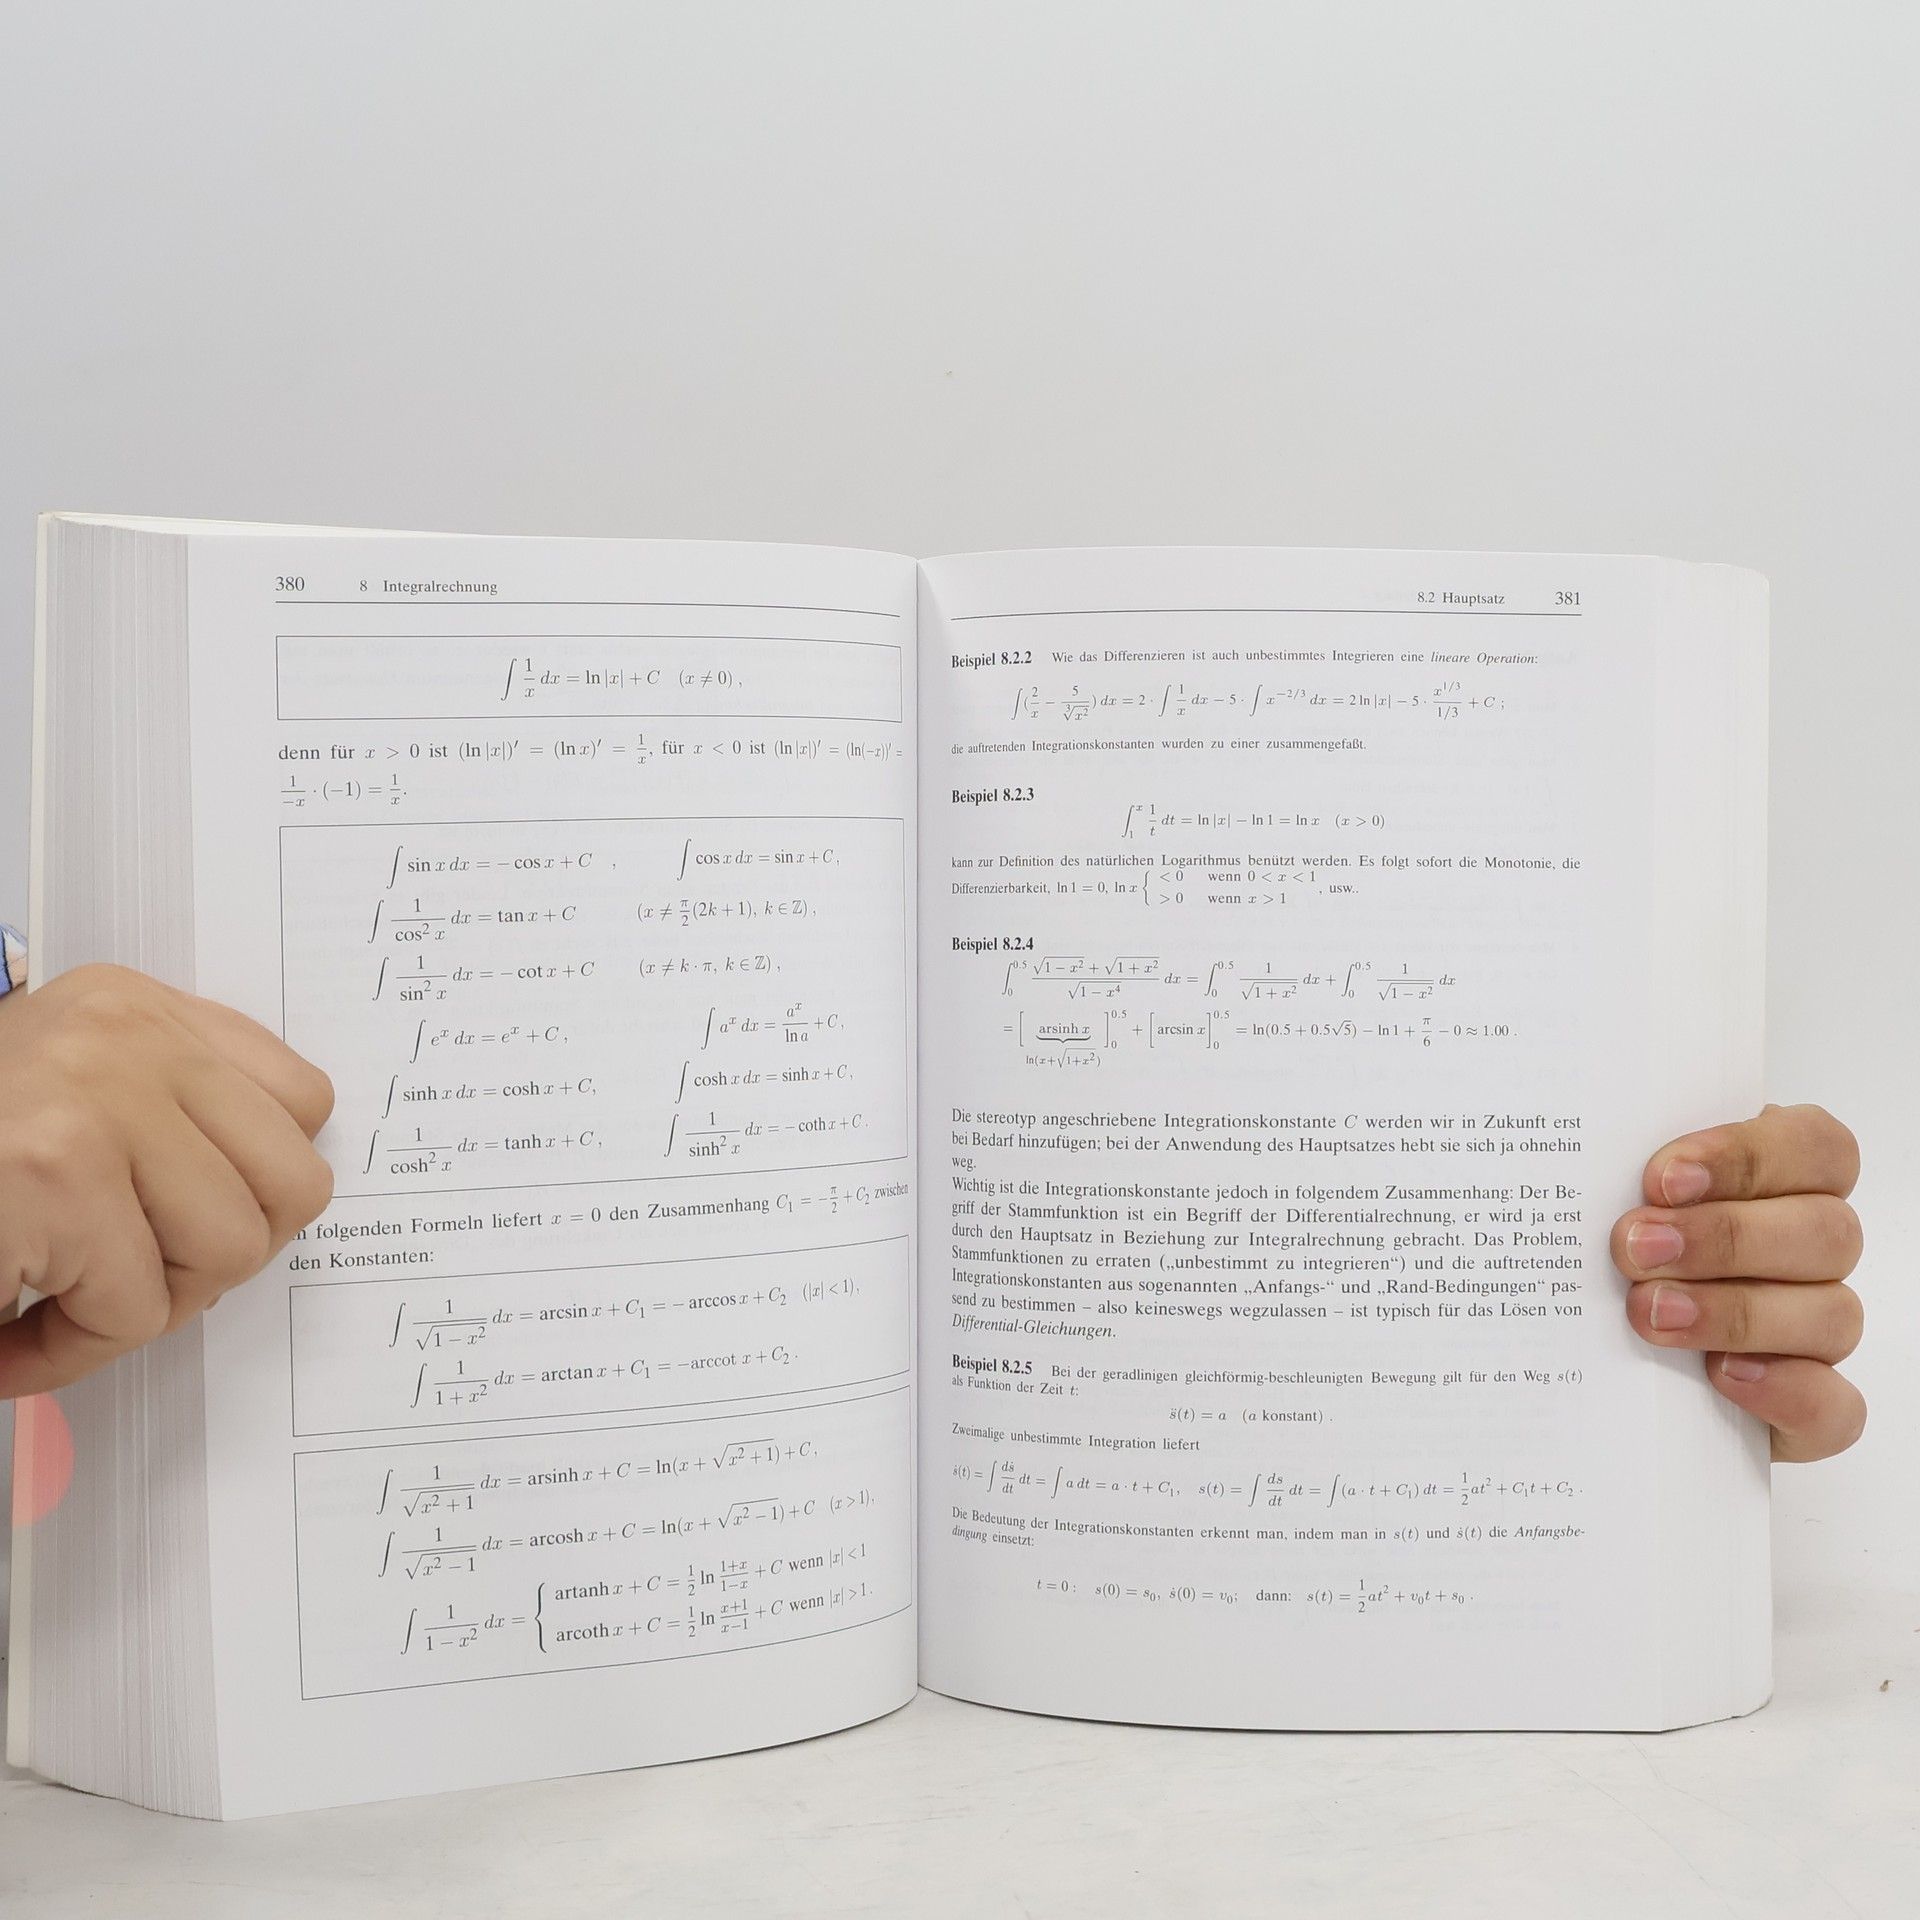 380 8 Integralrechnung
∫ 1/x dx = ln |x| + C (x ≠ 0) ,
denn für x > 0 ist (ln |x|)′ = (ln x)′ = 1/x, für x < 0 ist (ln |x|)′ = (ln(−x))′ =
1/−x · (−1) = 1/x.
∫ sin x dx = − cos x + C , ∫ cos x dx = sin x + C ,
∫ 1/cos² x dx = tan x + C (x ≠ π/2 (2k + 1), k ∈ ℤ) ,
∫ 1/sin² x dx = − cot x + C (x ≠ k · π, k ∈ ℤ) ,
∫ eˣ dx = eˣ + C , ∫ aˣ dx = aˣ/ln a + C ,
∫ sinh x dx = cosh x + C, ∫ cosh x dx = sinh x + C ,
∫ 1/cosh² x dx = tanh x + C , ∫ 1/sinh² x dx = − coth x + C .
folgenden Formeln liefert x = 0 den Zusammenhang C₁ = −π/2 + C₂ zwischen
den Konstanten:
∫ 1/√(1 − x²) dx = arcsin x + C₁ = − arccos x + C₂ (|x| < 1),
∫ 1/(1 + x²) dx = arctan x + C₁ = −arccot x + C₂ .
∫ 1/√(x² + 1) dx = arsinh x + C = ln(x + √(x² + 1)) + C ,
∫ 1/√(x² − 1) dx = arcosh x + C = ln(x + √(x² − 1)) + C (x > 1),
∫ 1/(1 − x²) dx = { artanh x + C = 1/2 ln (1+x)/(1−x) + C wenn |x| < 1
arcoth x + C = 1/2 ln (x+1)/(x−1) + C wenn |x| > 1 .
8.2 Hauptsatz 381
Beispiel 8.2.2 Wie das Differenzieren ist auch unbestimmtes Integrieren eine lineare Operation:
∫(2/x − 5/∛(x²)) dx = 2 · ∫ 1/x dx − 5 · ∫ x^(−2/3) dx = 2 ln |x| − 5 · x^(1/3)/(1/3) + C ;
die auftretenden Integrationskonstanten wurden zu einer zusammengefaßt.
Beispiel 8.2.3
∫₁ˣ 1/t dt = ln |x| − ln 1 = ln x (x > 0)
kann zur Definition des natürlichen Logarithmus benützt werden. Es folgt sofort die Monotonie, die
Differenzierbarkeit, ln 1 = 0, ln x { < 0 wenn 0 < x < 1
> 0 wenn x > 1 , usw..
Beispiel 8.2.4
∫₀^0.5 (√(1 − x²) + √(1 + x²))/√(1 − x⁴) dx = ∫₀^0.5 1/√(1 + x²) dx + ∫₀^0.5 1/√(1 − x²) dx
= [ arsinh x ]₀^0.5 + [ arcsin x ]₀^0.5 = ln(0.5 + 0.5√5) − ln 1 + π/6 − 0 ≈ 1.00 .
ln(x+√(1+x²))
Die stereotyp angeschriebene Integrationskonstante C werden wir in Zukunft erst
bei Bedarf hinzufügen; bei der Anwendung des Hauptsatzes hebt sie sich ja ohnehin
weg.
Wichtig ist die Integrationskonstante jedoch in folgendem Zusammenhang: Der Be-
griff der Stammfunktion ist ein Begriff der Differentialrechnung, er wird ja erst
durch den Hauptsatz in Beziehung zur Integralrechnung gebracht. Das Problem,
Stammfunktionen zu erraten („unbestimmt zu integrieren“) und die auftretenden
Integrationskonstanten aus sogenannten „Anfangs-“ und „Rand-Bedingungen“ pas-
send zu bestimmen – also keineswegs wegzulassen – ist typisch für das Lösen von
Differential-Gleichungen.
Beispiel 8.2.5 Bei der geradlinigen gleichförmig-beschleunigten Bewegung gilt für den Weg s(t)
als Funktion der Zeit t:
s̈(t) = a (a konstant) .
Zweimalige unbestimmte Integration liefert
ṡ(t) = ∫ dṡ/dt dt = ∫ a dt = a · t + C₁, s(t) = ∫ ds/dt dt = ∫(a · t + C₁) dt = 1/2 at² + C₁t + C₂ .
Die Bedeutung der Integrationskonstanten erkennt man, indem man in s(t) und ṡ(t) die Anfangsbe-
dingung einsetzt:
t = 0 : s(0) = s₀, ṡ(0) = v₀; dann: s(t) = 1/2 at² + v₀t + s₀ .